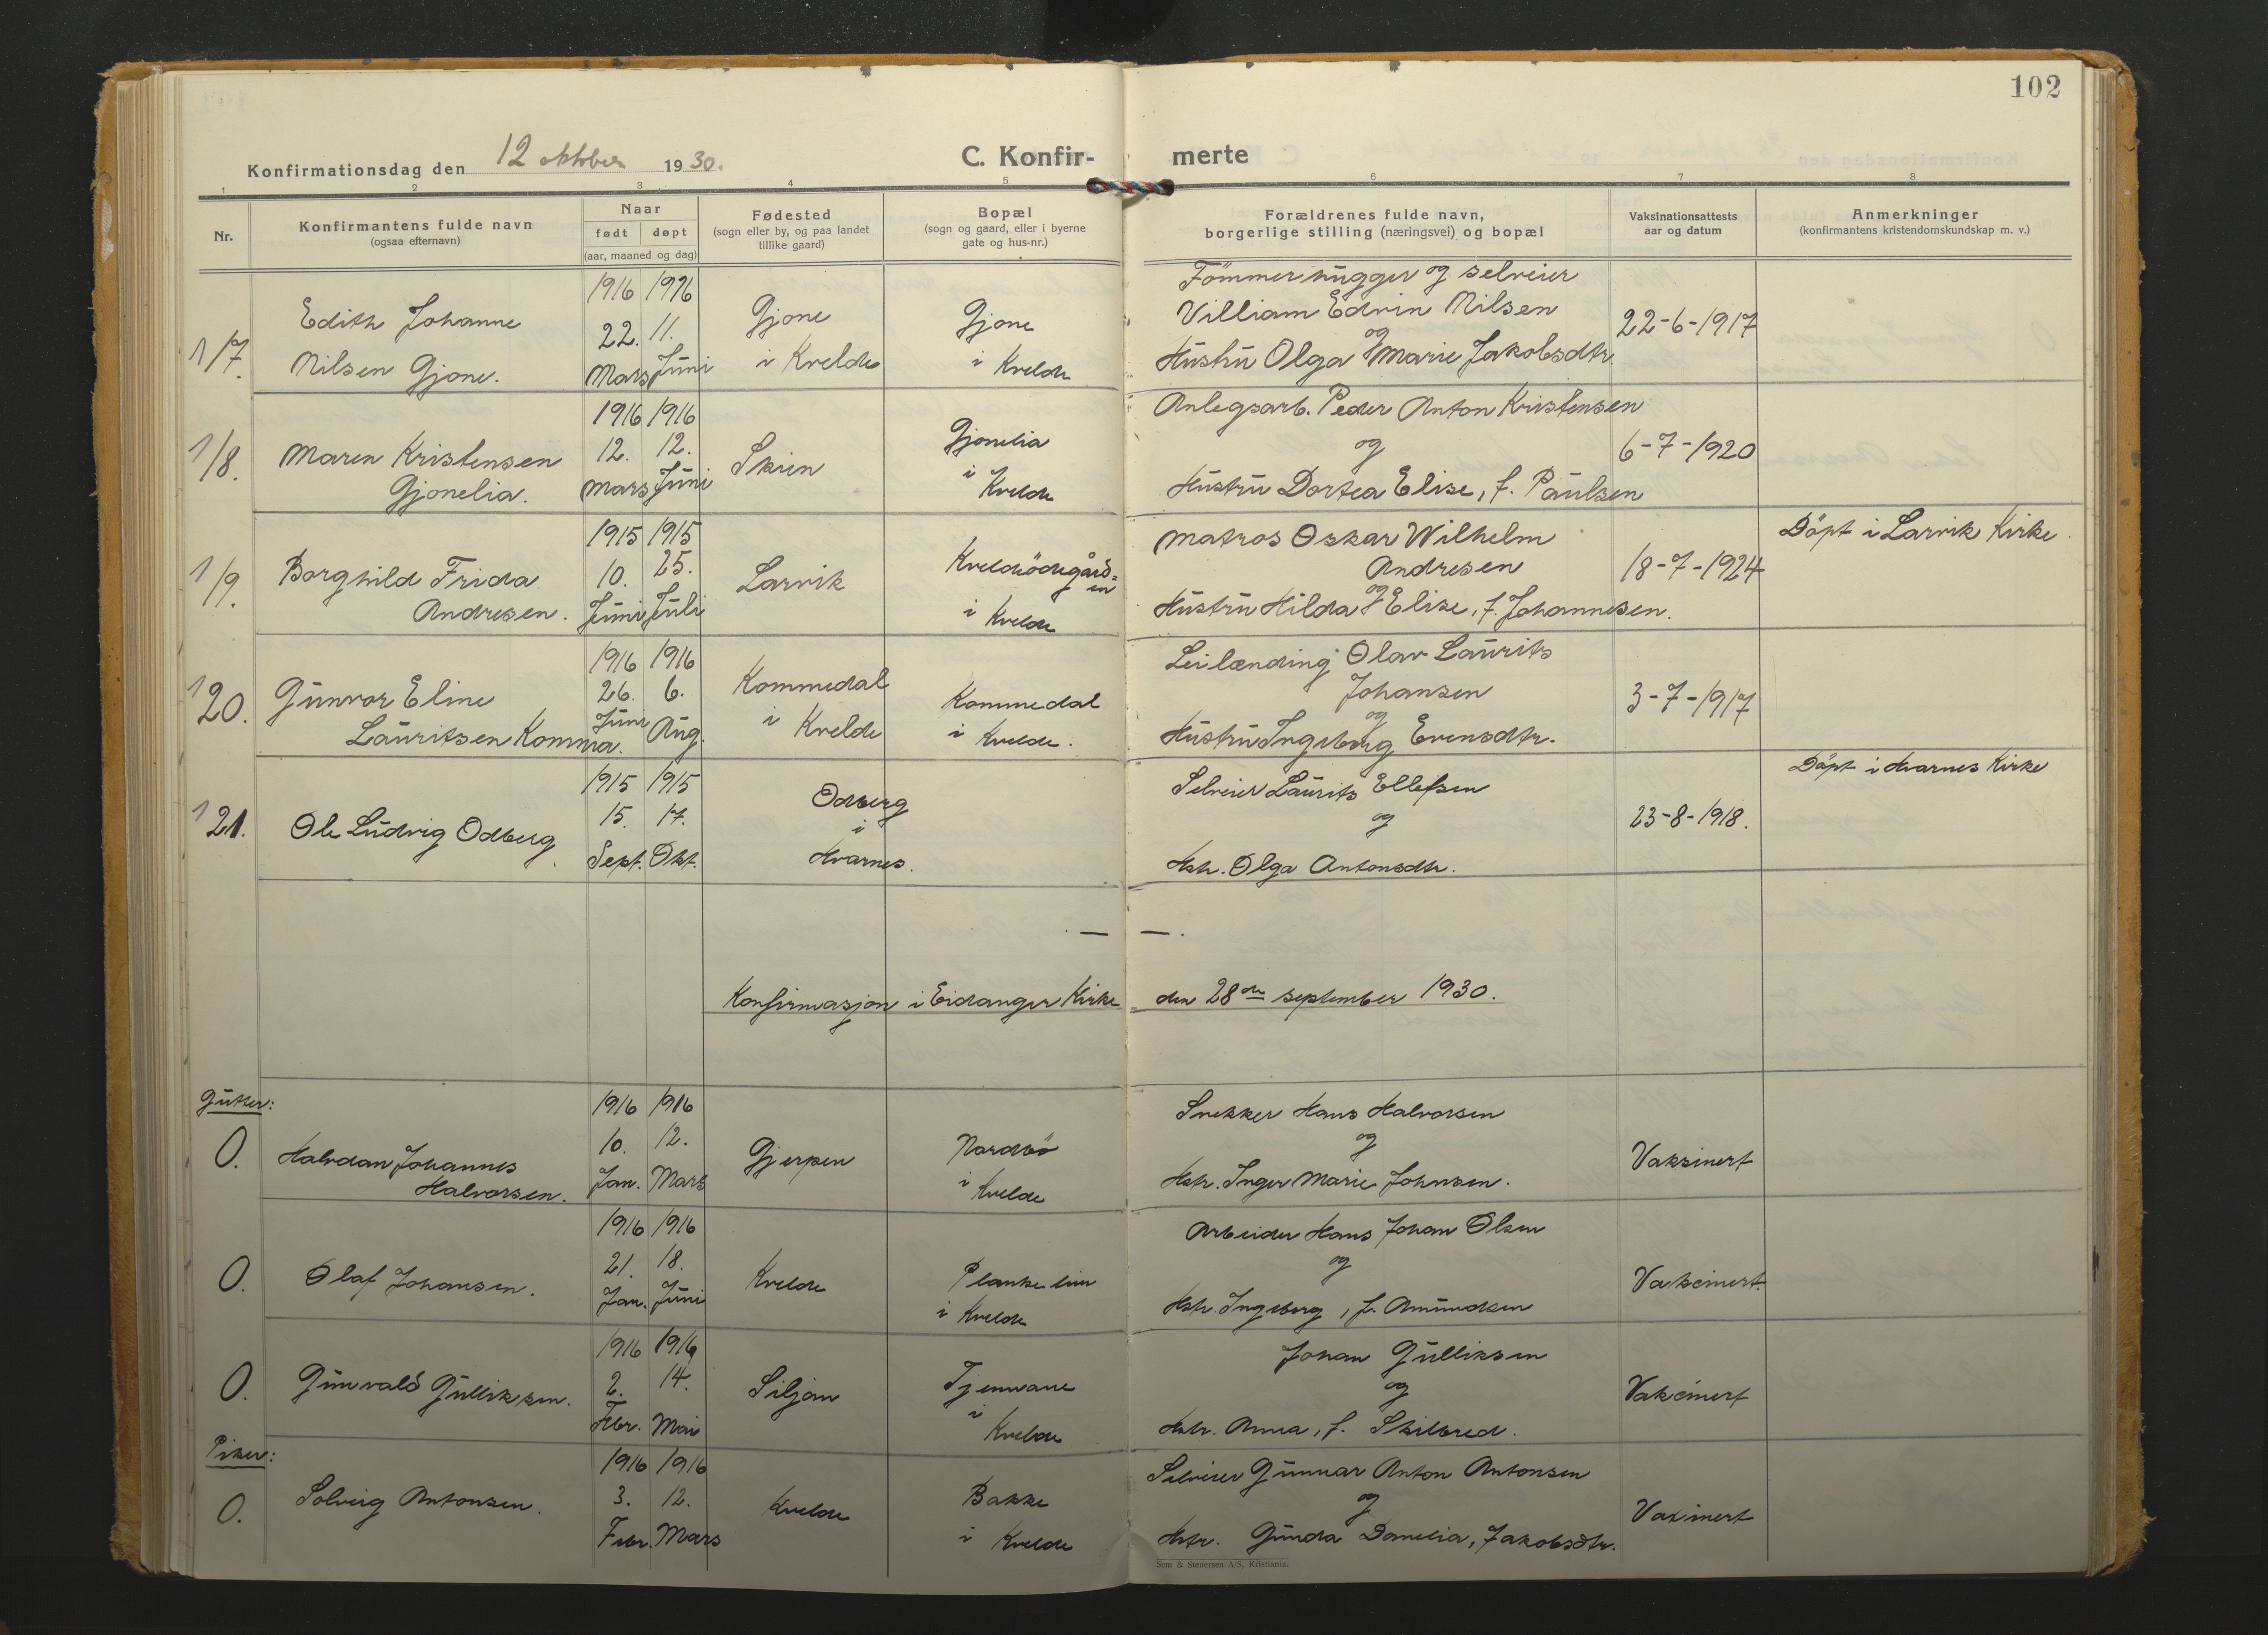 102
Konfirmationsdag den 12 oktober 1930.
C. Konfir- merte
1 2 3 4 5 6 7 8
Nr.
Konfirmantens fulde navn
(ogsaa efternavn)
Naar
født døpt
(aar, maaned og dag)
Fødested
(sogn eller by, og paa landet
tillike gaard)
Bopæl
(sogn og gaard, eller i byerne
gate og hus-nr.)
Forældrenes fulde navn,
borgerlige stilling (næringsvei) og bopæl
Vaksinationsattests
aar og datum
Anmerkninger
(konfirmantens kristendomskundskap m. v.)
17.
Edith Johanne
Nilsen Gjone.
1916 1916
22. 11.
Mars Juni
Gjone
i Kvelde
Gjone
i Kvelde
Tömmerhugger og selveier
Villiam Edvin Nilsen
og
Hustru Olga Marie Jakobsdtr.
22-6-1917
18.
Maren Kristensen
Gjonelia.
1916 1916
12. 12.
Mars Juni
Skien
Gjonelia
i
Kvelde
Anlegsarb. Peder Anton Kristensen
og
Hustru Dortea Elise, f. Paulsen
6-7-1920
19.
Borghild Frida
Andresen.
1915 1915
10. 25.
Juni Juli
Larvik
Kveldeödegård=
en
i Kvelde
Matros Oskar Wilhelm
Andresen
og
Hustru Hilda Elise, f. Johannesen.
18-7-1924
Döpt i Larvik Kirke.
120.
Gunvor Eline
Lauritsen Komma.
1916 1916
26. 6.
Juni Aug.
Kommedal
i Kvelde
Kommedal
i Kvelde.
Leilænding Olav Laurits
Johansen
og
Hustru Ingeborg Evensdtr.
3-7-1917
121.
Ole Ludvig Odberg.
1915 1915
15. 17.
Sept. Okt.
Odberg
i
Hvarnes.
Selveier Laurits Ellefsen
og
Hstr. Olga Antonsdtr.
23-8-1918.
Döpt i Hvarnes Kirke
. — — .
Konfirmasjon i Eidanger Kirke den 28de september 1930.
Gutter:
0.
Halvdan Johannes
Halvorsen.
1916 1916
10. 12.
Jan. Mars
Gjerpen
Nordbö
i
Kvelde
Snekker Hans Halvorsen
og
Hstr. Inger Marie Johnsen.
Vaksinert
0.
Olaf Johansen.
1916 1916
21. 18.
Jan. Juni
Kvelde
Plankelim
i Kvelde
Arbeider Hans Johan Olsen
og
Hstr. Ingeborg, f. Amundsen
Vaksinert.
0.
Gunvald Gulliksen.
1916 1916
2. 14.
Febr. Mai
Siljan
i
Kvelde
Johan Gulliksen
og
Hstr. Anna, f. Skilbred.
Vaksinert
Piker:
0.
Solveig Antonsen.
1916 1916
3. 12.
Febr. Mars
Kvelde
Bakke
i Kvelde
Selveier Gunnar Anton Antonsen
og
Hstr. Gunda Danelia, Jakobsdtr.
Vaxinert
Sem & Stenersen A/S, Kristiania.